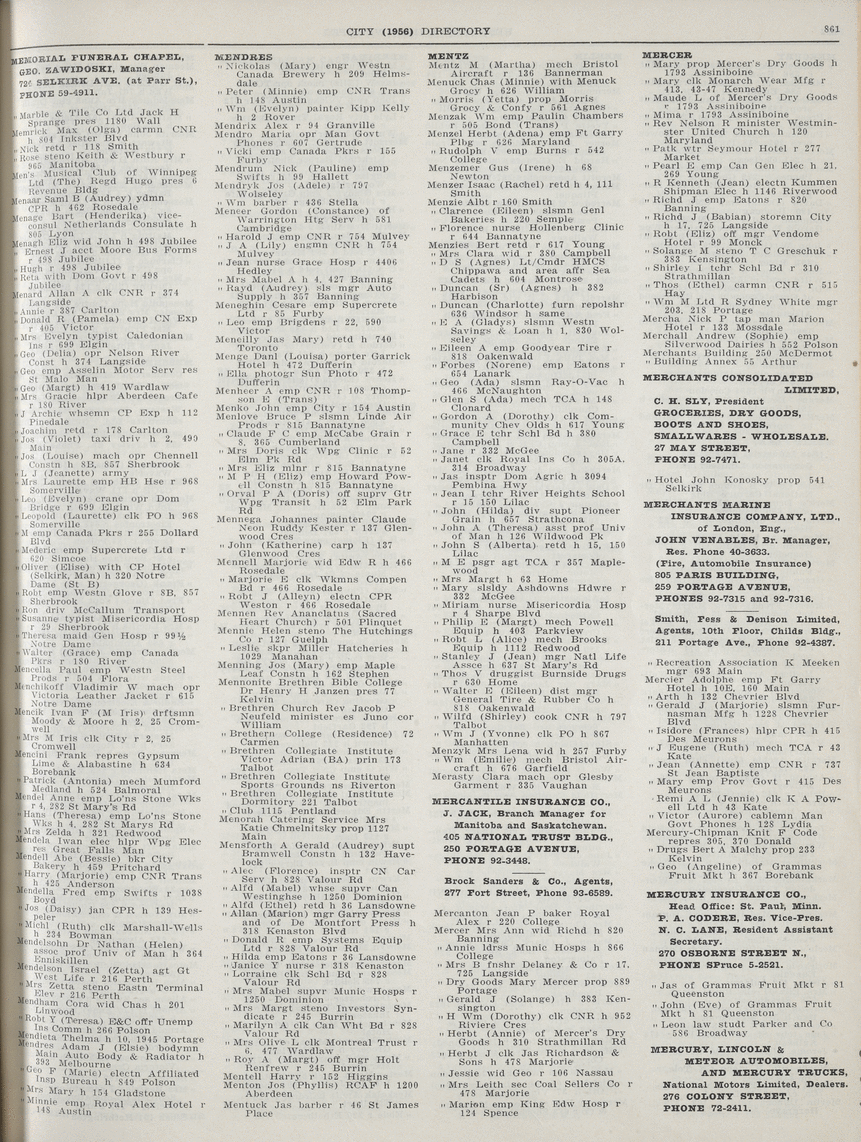 CITY (1956) DIRECTORY
861
MEMORIAL FUNERAL CHAPEL,
GEO. ZAWIDOSKI, Manager
72½ SELKIRK AVE. (at Parr St.),
PHONE 59-4911.
" Marble & Tile Co Ltd Jack H
Sprange pres 1180 Wall
Memrick Max (Olga) carmn CNR
h 804 Inkster Blvd
" Nick retd r 118 Smith
" Rose steno Keith & Westbury r
965 Manitoba
Men's Musical Club of Winnipeg
Ltd (The) Regd Hugo pres 6
Revenue Bldg
Menaar Saml B (Audrey) ydmn
CPR h 462 Rosedale
Menage Bart (Henderika) vice-
consul Netherlands Consulate h
805 Lyon
Menagh Eliz wid John h 498 Jubilee
" Ernest J acct Moore Bus Forms
r 498 Jubilee
" Hugh r 498 Jubilee
" Reta with Dom Govt r 498
Jubilee
Menard Allan A clk CNR r 374
Langside
" Annie r 387 Carlton
" Donald R (Pamela) emp CN Exp
r 405 Victor
" Mrs Evelyn typist Caledonian
Ins r 699 Elgin
" Geo (Delia) opr Nelson River
Const h 374 Langside
" Geo emp Asselin Motor Serv res
St Malo Man
" Geo (Margt) h 419 Wardlaw
" Mrs Gracie hlpr Aberdeen Cafe
r 180 River
" J Archie whsemn CP Exp h 112
Pinedale
" Joachim retd r 178 Carlton
" Jos (Violet) taxi driv h 2, 490
Main
" Jos (Louise) mach opr Chennell
Constn h 8B, 857 Sherbrook
" L J (Jeanette) army
" Mrs Laurette emp HB Hse r 968
Somerville
" Leo (Evelyn) crane opr Dom
Bridge r 699 Elgin
" Leopold (Laurette) clk PO h 968
Somerville
" M emp Canada Pkrs r 255 Dollard
Blvd
" Mederic emp Supercrete Ltd r
620 Simcoe
" Oliver (Elise) with CP Hotel
(Selkirk, Man) h 320 Notre
Dame (St B)
" Robt emp Westn Glove r 8B, 857
Sherbrook
" Ron driv McCallum Transport
" Susanne typist Misericordia Hosp
r 29 Sherbrook
" Theresa maid Gen Hosp r 99½
Notre Dame
" Walter (Grace) emp Canada
Pkrs r 180 River
Mencella Paul emp Westn Steel
Prods r 504 Flora
Menchikoff Vladimir W mach opr
Victoria Leather Jacket r 615
Notre Dame
Mencik Ivan F (M Iris) drftsmn
Moody & Moore h 2, 25 Crom-
well
" Mrs M Iris clk City r 2, 25
Cromwell
Mencini Frank repres Gypsum
Lime & Alabastine h 634
Borebank
" Patrick (Antonia) mech Mumford
Medland h 524 Balmoral
Mendel Anne emp Lo'ns Stone Wks
r 4, 282 St Mary's Rd
" Hans (Theresa) emp Lo'ns Stone
Wks h 4, 282 St Marys Rd
" Mrs Zelda h 321 Redwood
Mendela Iwan elec hlpr Wpg Elec
res Great Falls Man
Mendell Abe (Bessie) bkr City
Bakery h 459 Pritchard
" Harry (Marjorie) emp CNR Trans
h 425 Anderson
Mendella Fred emp Swifts r 1038
Boyd
" Jos (Daisy) jan CPR h 139 Hes-
peler
" Michl (Ruth) clk Marshall-Wells
h 234 Bowman
Mendelsohn Dr Nathan (Helen)
assoc prof Univ of Man h 364
Enniskillen
Mendelson Israel (Zetta) agt Gt
West Life r 216 Perth
" Mrs Zetta steno Eastn Terminal
Elev r 216 Perth
Mendham Cora wid Chas h 201
Linwood
" Robt Y (Teresa) E&C offr Unemp
Ins Comm h 266 Polson
Mendieta Thelma h 10, 1945 Portage
Mendres Adam J (Elsie) bodymn
Main Auto Body & Radiator h
393 Melbourne
" Geo F (Marie) electn Affiliated
Insp Bureau h 849 Polson
" Mrs Mary h 154 Gladstone
" Minnie emp Royal Alex Hotel r
148 Austin
MENDRES
" Nickolas (Mary) engr Westn
Canada Brewery h 209 Helms-
dale
" Peter (Minnie) emp CNR Trans
h 148 Austin
" Wm (Evelyn) painter Kipp Kelly
h 2 Rover
Mendrix Alex r 94 Granville
Mendro Maria opr Man Govt
Phones r 607 Gertrude
" Vicki emp Canada Pkrs r 155
Furby
Mendrum Nick (Pauline) emp
Swifts h 99 Hallett
Mendryk Jos (Adele) r 797
Wolseley
" Wm barber r 436 Stella
Meneer Gordon (Constance) of
Warrington Htg Serv h 581
Cambridge
" Harold J emp CNR r 754 Mulvey
" J A (Lily) engmn CNR h 754
Mulvey
" Jean nurse Grace Hosp r 4406
Hedley
" Mrs Mabel A h 4, 427 Banning
" Rayd (Audrey) sls mgr Auto
Supply h 357 Banning
Meneghin Cesare emp Supercrete
Ltd r 85 Furby
" Leo emp Brigdens r 22, 590
Victor
Meneilly Jas Mary) retd h 740
Toronto
Menge Danl (Louisa) porter Garrick
Hotel h 472 Dufferin
" Ella photogr Sun Photo r 472
Dufferin
Menheer A emp CNR r 108 Thomp-
son E (Trans)
Menko John emp City r 154 Austin
Menlove Bruce P slsmn Linde Air
Prods r 815 Bannatyne
" Claude F C emp McCabe Grain r
8, 365 Cumberland
" Mrs Doris clk Wpg Clinic r 52
Elm Pk Rd
" Mrs Eliz mlnr r 815 Bannatyne
" M P H (Eliz) emp Howard Pow-
ell Constn h 815 Bannatyne
" Orval P A (Doris) off suprv Gtr
Wpg Transit h 52 Elm Park
Rd
Mennega Johannes painter Claude
Neon Ruddy Kester r 137 Glen-
wood Cres
" John (Katherine) carp h 137
Glenwood Cres
Mennell Marjorie wid Edw R h 466
Rosedale
" Marjorie E clk Wkmns Compen
Bd r 466 Rosedale
" Robt J (Alleyn) electn CPR
Weston r 466 Rosedale
Mennen Rev Ananclatus (Sacred
Heart Church) r 501 Plinquet
Mennie Helen steno The Hutchings
Co r 127 Guelph
" Leslie skpr Miller Hatcheries h
1029 Manahan
Menning Jos (Mary) emp Maple
Leaf Constn h 162 Stephen
Mennonite Brethren Bible College
Dr Henry H Janzen pres 77
Kelvin
" Brethren Church Rev Jacob P
Neufeld minister es Juno cor
William
" Brethern College (Residence) 72
Carmen
" Brethren Collegiate Institute
Victor Adrian (BA) prin 173
Talbot
" Brethren Collegiate Institute
Sports Grounds ns Riverton
" Brethren Collegiate Institute
Dormitory 221 Talbot
" Club 1115 Pentland
Menorah Catering Service Mrs
Katie Chmelnitsky prop 1127
Main
Mensforth A Gerald (Audrey) supt
Bramwell Constn h 132 Have-
lock
" Alec (Florence) insptr CN Car
Serv h 828 Valour Rd
" Alfd (Mabel) whse suprv Can
Westinghse h 1250 Dominion
" Alfd (Ethel) retd h 36 Lansdowne
" Allan (Marion) mgr Garry Press
and of De Montfort Press h
318 Kenaston Blvd
" Donald R emp Systems Equip
Ltd r 828 Valour Rd
" Hilda emp Eatons r 36 Lansdowne
" Janice Y nurse r 318 Kenaston
" Lorraine clk Schl Bd r 828
Valour Rd
" Mrs Mabel suprv Munic Hosps r
1250 Dominion
" Mrs Margt steno Investors Syn-
dicate r 245 Burrin
" Marilyn A clk Can Wht Bd r 828
Valour Rd
" Mrs Olive L clk Montreal Trust r
6, 477 Wardlaw
" Roy A (Margt) off mgr Holt
Renfrew r 245 Burrin
Mentell Harry r 152 Higgins
Menton Jos (Phyllis) RCAF h 1200
Aberdeen
Mentuck Jas barber r 46 St James
Place
MENTZ
Mentz M (Martha) mech Bristol
Aircraft r 136 Bannerman
Menuck Chas (Minnie) with Menuck
Grocy h 626 William
" Morris (Yetta) prop Morris
Grocy & Confy r 561 Agnes
Menzak Wm emp Paulin Chambers
r 505 Bond (Trans)
Menzel Herbt (Adena) emp Ft Garry
Plbg r 626 Maryland
" Rudolph V emp Burns r 542
College
Menzemer Gus (Irene) h 68
Newton
Menzer Isaac (Rachel) retd h 4, 111
Smith
Menzie Albt r 160 Smith
" Clarence (Eileen) slsmn Genl
Bakeries h 220 Semple
" Florence nurse Hollenberg Clinic
r 644 Bannatyne
Menzies Bert retd r 617 Young
" Mrs Clara wid r 380 Campbell
" D S (Agnes) Lt/Cmdr HMCS
Chippawa and area affr Sea
Cadets h 604 Montrose
" Duncan (Sr) (Agnes) h 382
Harbison
" Duncan (Charlotte) furn repolshr
636 Windsor h same
" E A (Gladys) slsmn Westn
Savings & Loan h 1, 830 Wol-
seley
" Eileen A emp Goodyear Tire r
818 Oakenwald
" Forbes (Norene) emp Eatons r
654 Lanark
" Geo (Ada) slsmn Ray-O-Vac h
466 McNaughton
" Glen S (Ada) mech TCA h 148
Clonard
" Gordon A (Dorothy) clk Com-
munity Chev Olds h 617 Young
" Grace E tchr Schl Bd h 380
Campbell
" Jane r 332 McGee
" Janet clk Royal Ins Co h 305A.
314 Broadway
" Jas insptr Dom Agric h 3094
Pembina Hwy
" Jean I tchr River Heights School
r 15 150 Lilac
" John (Hilda) div supt Pioneer
Grain h 657 Strathcona
" John A (Theresa) asst prof Univ
of Man h 126 Wildwood Pk
" John S (Alberta) retd h 15, 150
Lilac
" M E psgr agt TCA r 357 Maple-
wood
" Mrs Margt h 63 Home
" Mary slsldy Ashdowns Hdwre r
332 McGee
" Miriam nurse Misericordia Hosp
r 4 Sharpe Blvd
" Philip E (Margt) mech Powell
Equip h 403 Parkview
" Robt L (Alice) mech Brooks
Equip h 1112 Redwood
" Stanley J (Jean) mgr Natl Life
Assce h 637 St Mary's Rd
" Thos V druggist Burnside Drugs
r 630 Home
" Walter E (Eileen) dist mgr
General Tire & Rubber Co h
818 Oakenwald
" Wilfd (Shirley) cook CNR h 797
Talbot
" Wm J (Yvonne) clk PO h 867
Manhatten
Menzyk Mrs Lena wid h 257 Furby
" Wm (Emilie) mech Bristol Air-
craft h 676 Garfield
Merasty Clara mach opr Glesby
Garment r 335 Vaughan
MERCANTILE INSURANCE CO.,
J. JACK, Branch Manager for
Manitoba and Saskatchewan.
405 NATIONAL TRUST BLDG.,
250 PORTAGE AVENUE,
PHONE 92-3448.
Brock Sanders & Co., Agents,
277 Fort Street, Phone 93-6589.
Mercanton Jean P baker Royal
Alex r 220 College
Mercer Mrs Ann wid Richd h 820
Banning
" Annie ldrss Munic Hosps h 866
College
" Mrs B fnshr Delaney & Co r 17,
725 Langside
" Dry Goods Mary Mercer prop 889
Portage
" Gerald J (Solange) h 383 Ken-
sington
" H Wm (Dorothy) clk CNR h 952
Riviere Cres
" Herbt (Annie) of Mercer's Dry
Goods h 310 Strathmillan Rd
" Herbt J clk Jas Richardson &
Sons h 478 Marjorie
" Jessie wid Geo r 106 Nassau
" Mrs Leith sec Coal Sellers Co r
478 Marjorie
" Marion emp King Edw Hosp r
124 Spence
MERCER
" Mary prop Mercer's Dry Goods h
1793 Assiniboine
" Mary clk Monarch Wear Mfg r
413, 43-47 Kennedy
" Maude L of Mercer's Dry Goods
r 1793 Assiniboine
" Mima r 1793 Assiniboine
" Rev Nelson R minister Westmin-
ster United Church h 120
Maryland
" Patk wtr Seymour Hotel r 277
Market
" Pearl E emp Can Gen Elec h 21,
269 Young
" R Kenneth (Jean) electn Kummen
Shipman Elec h 1146 Riverwood
" Richd J emp Eatons r 820
Banning
" Richd J (Babian) storemn City
h 17, 725 Langside
" Robt (Eliz) off mgr Vendome
Hotel r 99 Monck
" Solange M steno T C Greschuk r
383 Kensington
" Shirley I tchr Schl Bd r 310
Strathmillan
" Thos (Ethel) carmn CNR r 515
Hay
" Wm M Ltd R Sydney White mgr
203, 218 Portage
Mercha Nick P tap man Marion
Hotel r 133 Mossdale
Merchall Andrew (Sophie) emp
Silverwood Dairies h 552 Polson
Merchants Building 250 McDermot
" Building Annex 55 Arthur
MERCHANTS CONSOLIDATED
LIMITED,
C. H. SLY, President
GROCERIES, DRY GOODS,
BOOTS AND SHOES,
SMALLWARES - WHOLESALE.
27 MAY STREET,
PHONE 92-7471.
" Hotel John Konosky prop 541
Selkirk
MERCHANTS MARINE
INSURANCE COMPANY, LTD.,
of London, Eng.,
JOHN VENABLES, Br. Manager,
Res. Phone 40-3633.
(Fire, Automobile Insurance)
805 PARIS BUILDING,
259 PORTAGE AVENUE,
PHONES 92-7315 and 92-7316.
Smith, Fess & Denison Limited,
Agents, 10th Floor, Childs Bldg.,
211 Portage Ave., Phone 92-4387.
" Recreation Association K Meeken
mgr 693 Main
Mercier Adolphe emp Ft Garry
Hotel h 10E, 160 Main
" Arth h 132 Chevrier Blvd
" Gerald J (Marjorie) slsmn Fur-
nasman Mfg h 1228 Chevrier
Blvd
" Isidore (Frances) hlpr CPR h 415
Des Meurons
" J Eugene (Ruth) mech TCA r 43
Kate
" Jean (Annette) emp CNR r 737
St Jean Baptiste
" Mary emp Prov Govt r 415 Des
Meurons
" Remi A L (Jennie) clk K A Pow-
ell Ltd h 43 Kate
" Victor (Aurore) cablemn Man
Govt Phones h 128 Lydia
Mercury-Chipman Knit F Code
repres 305, 370 Donald
" Drugs Bert A Malchy prop 233
Kelvin
" Geo (Angeline) of Grammas
Fruit Mkt h 367 Borebank
MERCURY INSURANCE CO.,
Head Office: St. Paul, Minn.
P. A. CODERE, Res. Vice-Pres.
N. C. LANE, Resident Assistant
Secretary.
270 OSBORNE STREET N.,
PHONE SPruce 5-2521.
" Jas of Grammas Fruit Mkt r 81
Queenston
" John (Eve) of Grammas Fruit
Mkt h 81 Queenston
" Leon law studt Parker and Co
586 Broadway
MERCURY, LINCOLN &
METEOR AUTOMOBILES,
AND MERCURY TRUCKS,
National Motors Limited, Dealers.
276 COLONY STREET,
PHONE 72-2411.